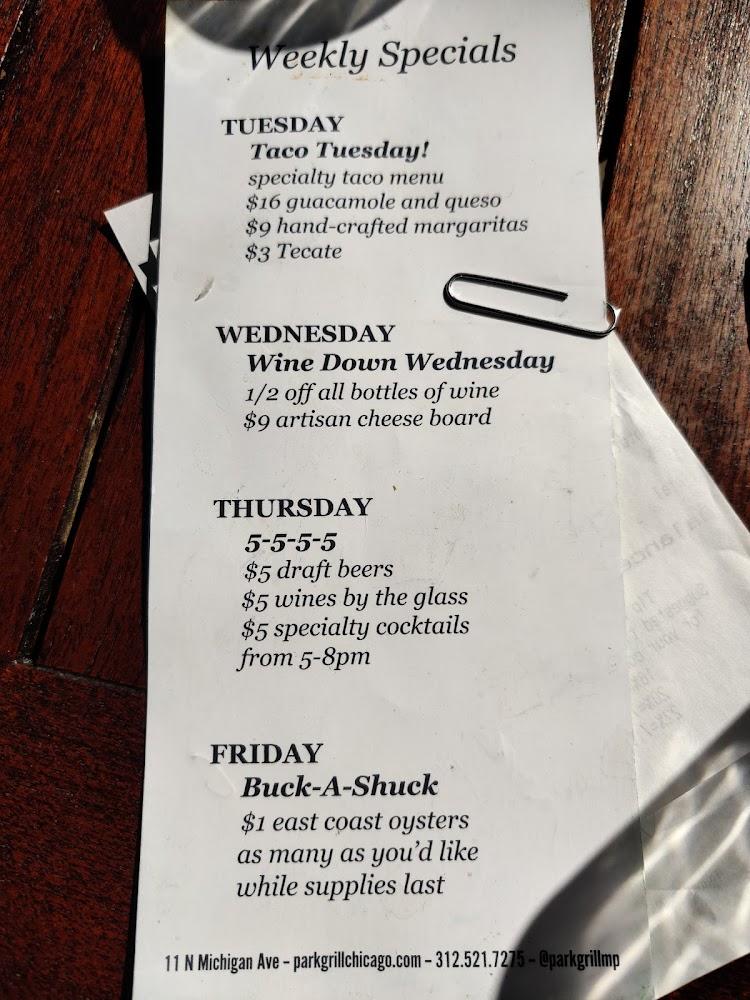 Weekly Specials
TUESDAY
Taco Tuesday!
specialty taco menu
$16 guacamole and queso
$9 hand-crafted margaritas
$3 Tecate
WEDNESDAY
Wine Down Wednesday
1/2 off all bottles of wine
$9 artisan cheese board
THURSDAY
5-5-5-5
$5 draft beers
$5 wines by the glass
$5 specialty cocktails
from 5-8pm
FRIDAY
Buck-A-Shuck
$1 east coast oysters
as many as you'd like
while supplies last
11 N Michigan Ave – parkgrillchicago.com – 312.521.7275 – @parkgrillmp